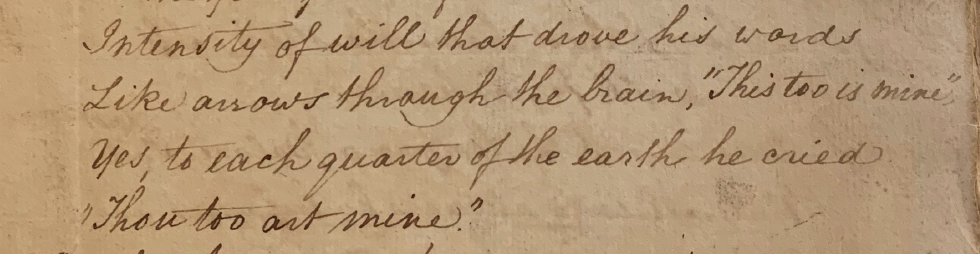 Intensity of will that drove his words
Like arrows through the brain, "This too is mine"
Yes, to each quarter of the earth he cried
"Thou too art mine."